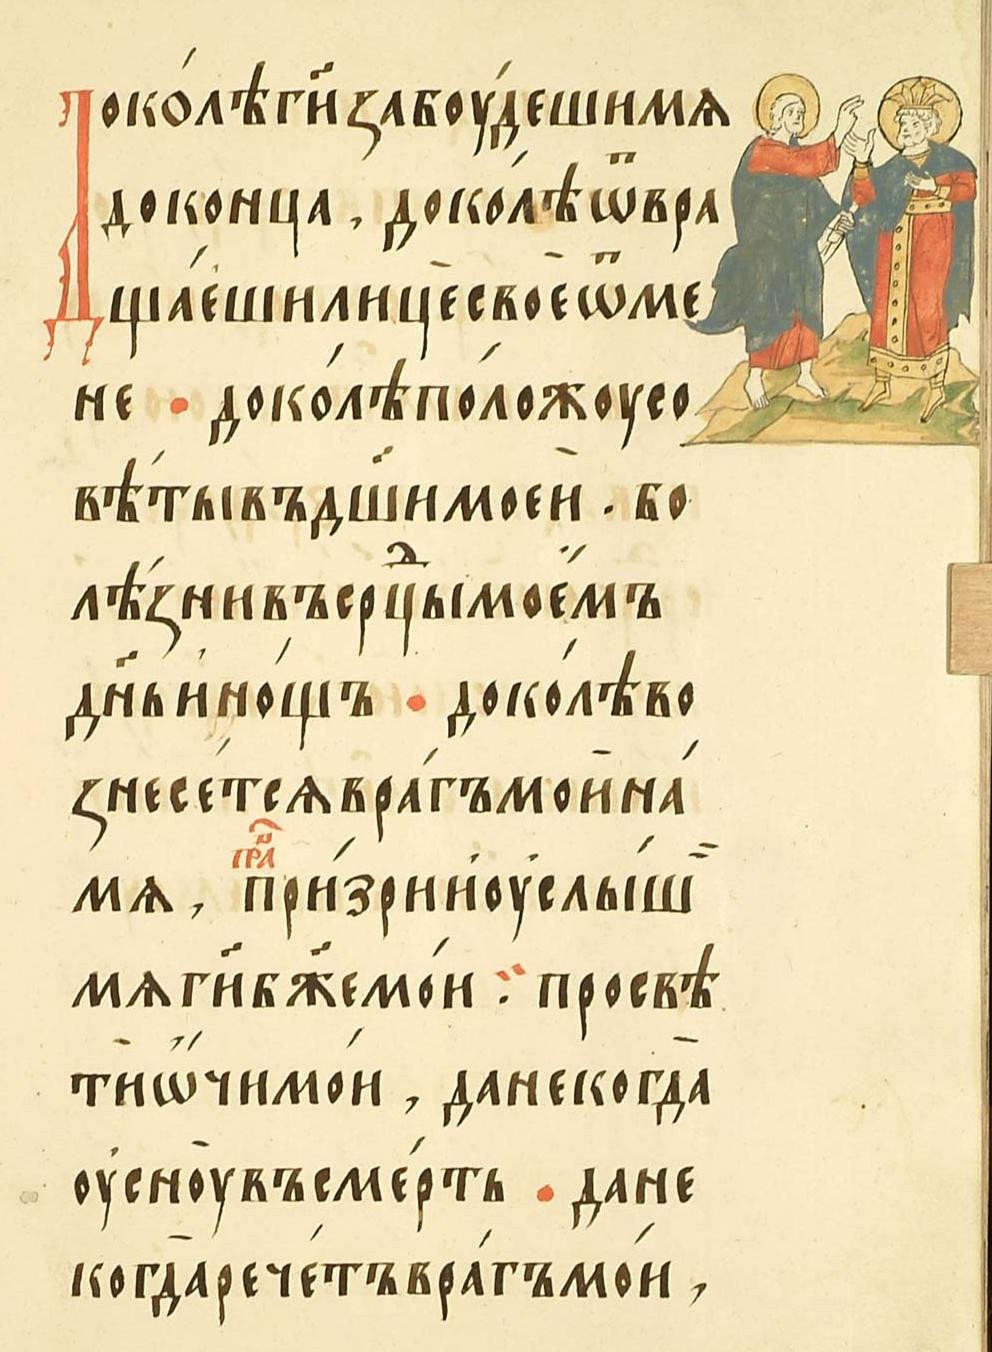 Доко́лѣ гн҃и забоу́деши мя
до конца , доко́лѣ ѿвра
ща́еши лице свое ѿ ме
не • доко́лѣ поло́жоу со
вѣ́ты въ дш҃и моеи . бо
лѣ́зни въ срⷣцы мое́мъ
дн҃ь и но́щъ • доко́лѣ во
знесе́тся вра́гъ мои на́
пра҃
мя , при́зри и оуслы́ш
мя гн҃и бж҃е мо́и : просвѣ
ти ѿчи мо́и , да некогда
оусноу въ сме́рть • да не
когда рече́тъ вра́гъ мо́и ,